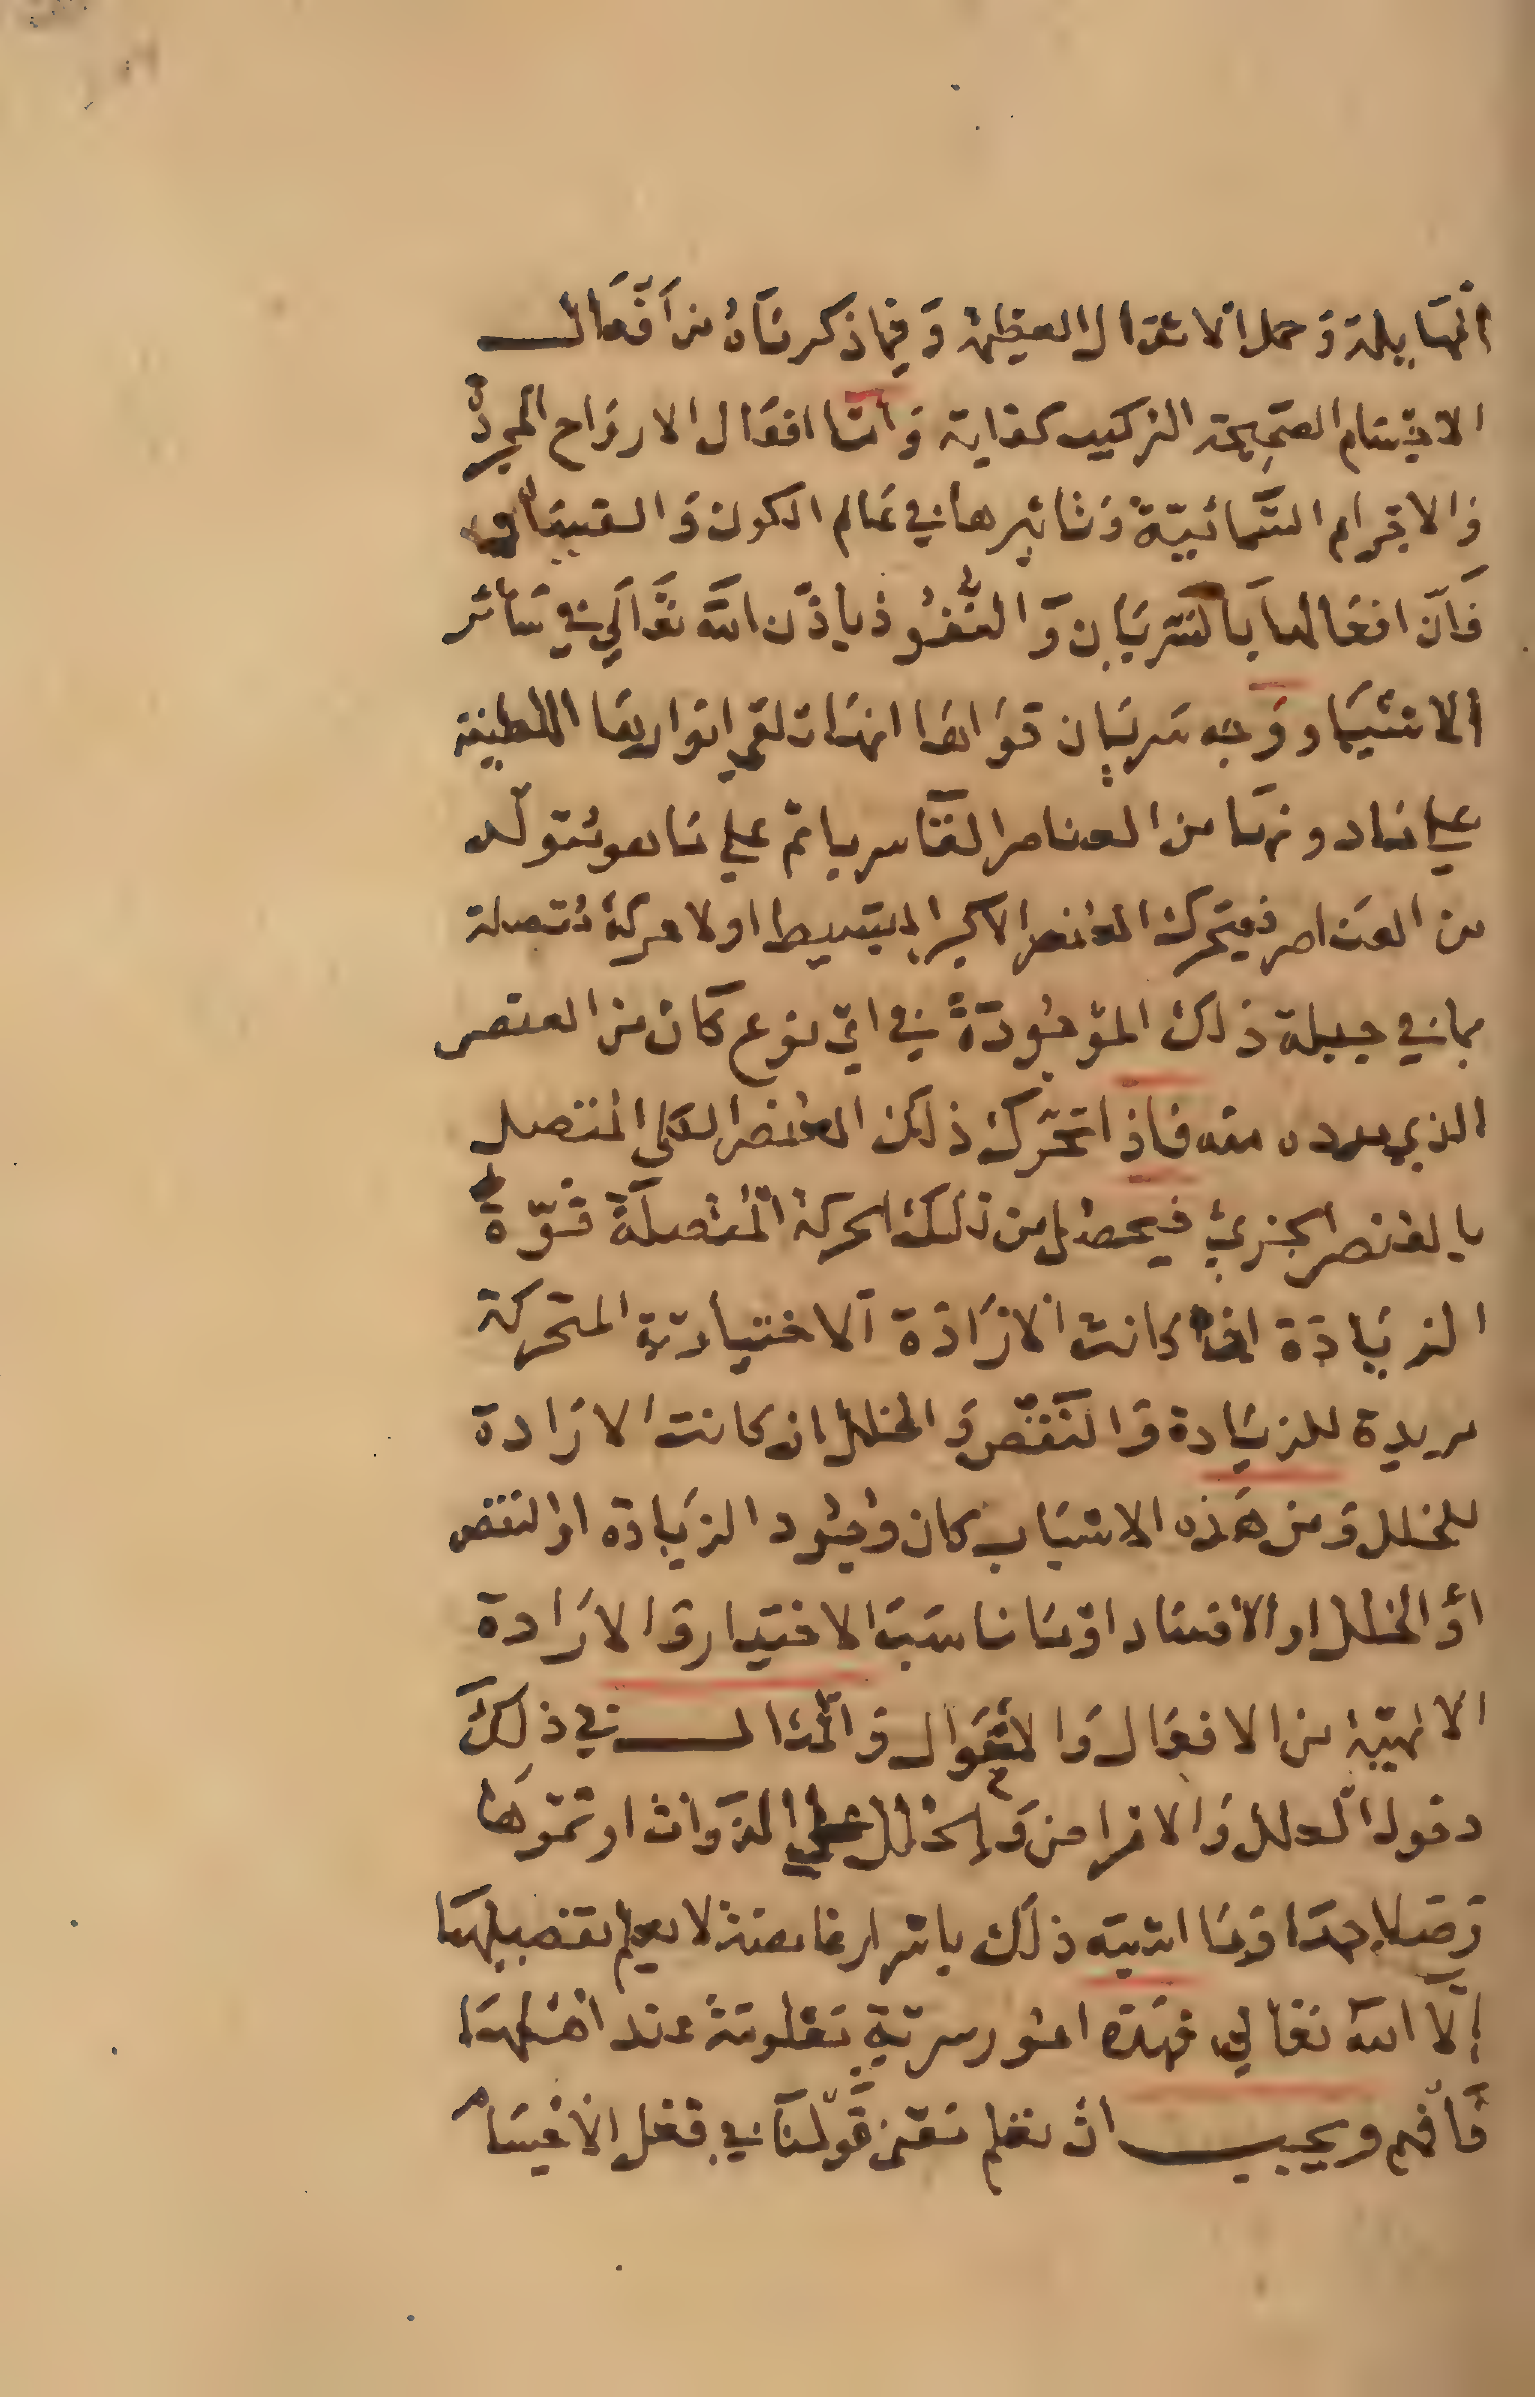 الهايلة وَحمل الاثقال العظيمة وَفيما ذكرنَاهُ من اَفعَال
الاجسَام الصَحِيحة التركيب كفاية وَامّا افعَال الارْوَاح المجردّة
وَالاجرام السَّمائيّة وَتاثيرها في عَالم الكون وَ
فَاَنّ افعَالها بالسّرَيَان وَالنُّفُوذ باذن الله تعَالَي في سَائر
الاشيَاء ووَجه سَرَيَان قوَاها انهَا تلقي انوارها اللطيفة
علي مَادونهَا من العناصر ثم علي مَا هو متولد
من العنَاصر فيتحرك العنصر الاكبر البسيط اولا حركة متصلة
بما في جبلة ذلك الموْجُودَةً في ايّ نوع كَان من العنصر
الذي منه فاذا تحَرّك ذلك العنصر الكلي المتصل
بالعنصر الجزئي فيحصل من تلك الحركة المتصلَةً قُوّة
الزيَادَة اذا كانت الارَادَة الاختيارية المتحركة
مريدة للزيَادة وَالنقص وَالخلل ان كانت الارَادة
للخلل وَمن هَذه الاسبَاب كان وجُود الزيَادة او النقص
اوْ الخلل او الافسَاد اوْ مَا نَاسَبَ الاختيار وَالارَادة
الالهيّة من الافعَال وَالاحوَال وَالمثال في ذلِكَ
دخول العلل وَالامراض وَالخلل علي الذوَات او نموّهَا
وَصلاحهَا وَمَا اشبَه ذلك باسرار غامضة لا يعلم تفصيلهَا
اِلّا الله تعَالي فهَذه امُور سريّة مَعلومَةً عند اهْلهَا
فَافهم ويجب انْ تعلم مَعنى قَوْلنَا في فعْل الاجْسَام